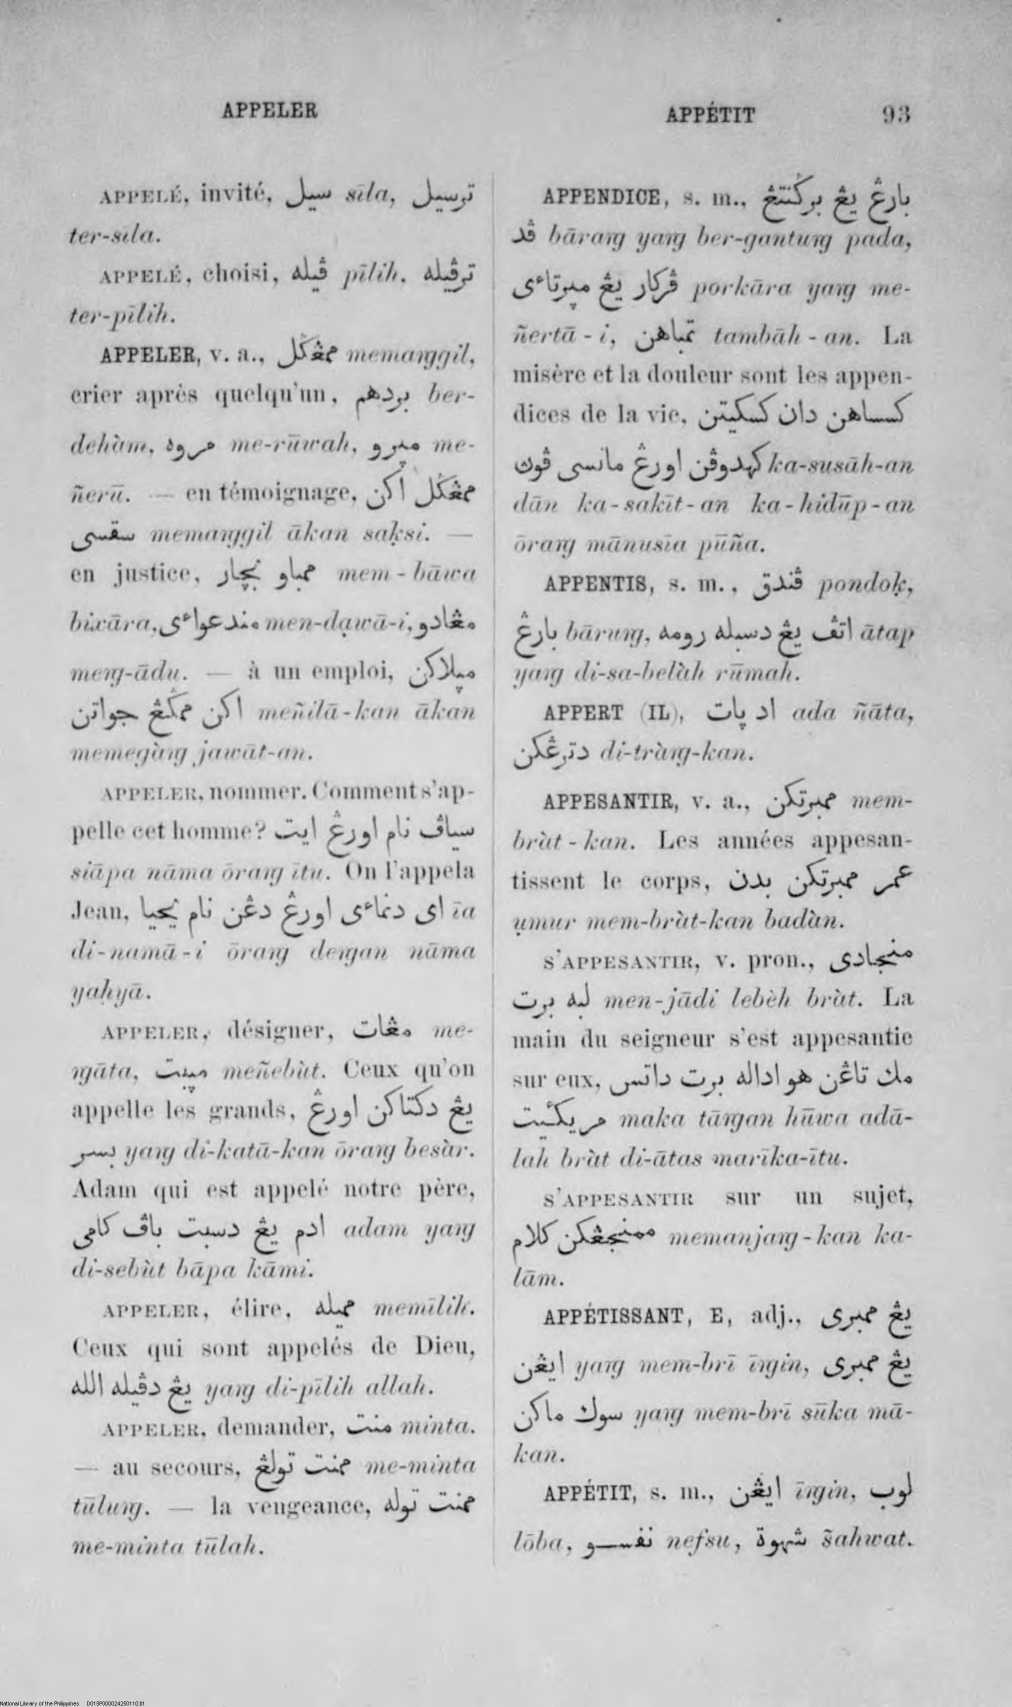 APPELER
APPÉTIT 93
APPELÉ, invité, سيل sīla, ترسيل
ter-sīla.
APPELÉ, choisi, ڤيله pīlih, ترڤيله
ter-pīlih.
APPELER, v. a., ممڠݢل memaŋggil,
crier après quelqu'un, بردهم ber-
dehàm, مروه me-rūwah, ميرو me-
ñerū. — en témoignage, ممڠݢل اكن
سقسى memaŋggil ākan saḳsi. —
en justice, ممباو بچار mem-bāwa
bixāra, مندعواءى men-dạwā-i, مڠادو
meŋ-ādu. — à un emploi, ميلاكن
اكن ممݢڠ جواتن meñilā-kan ākan
memegàŋ jawāt-an.
APPELER, nommer. Comment s'ap-
pelle cet homme? سياڤ نام اورڠ ايت
siāpa nāma ōraŋ ītu. On l'appela
Jean, اى دنماءى اورڠ دڠن نام يحيا īa
di-namā-i ōraŋ deŋan nāma
yaḥyā.
APPELER, désigner, مڠات me-
ŋāta, ميبت meñebùt. Ceux qu'on
appelle les grands, يڠ دكتاكن اورڠ
بسر yaŋ di-katā-kan ōraŋ besàr.
Adam qui est appelé notre père,
ادم يڠ دسبت باڤ كامى adam yaŋ
di-sebùt bāpa kāmi.
APPELER, élire, مميله memīlih.
Ceux qui sont appelés de Dieu,
يڠ دڤيله الله yaŋ di-pīlih allah.
APPELER, demander, منت minta.
— au secours, ممنت تولڠ me-minta
tūluŋ. — la vengeance, ممنت توله
me-minta tūlah.
APPENDICE, s. m., بارڠ يڠ برݢنتڠ
ڤد bāraŋ yaŋ ber-gantuŋ pada,
ڤركار يڠ ميرتاءى porkāra yaŋ me-
ñertā-i, تمباهن tambāh-an. La
misère et la douleur sont les appen-
dices de la vie, كسساهن دان كسكيتن
كهدوڤن اورڠ مانسى ڤون ka-susāh-an
dān ka-sakīt-an ka-hidūp-an
ōraŋ mānusīa pūña.
APPENTIS, s. m., ڤندق pondoḳ,
بارڠ bāruŋ, اتڤ يڠ دسبله رومه ātap
yaŋ di-sa-belàh rūmah.
APPERT (IL), اد يات ada ñāta,
دترڠكن di-tràŋ-kan.
APPESANTIR, v. a., ممبرتكن mem-
bràt-kan. Les années appesan-
tissent le corps, عمر ممبرتكن بدن
ụmur mem-bràt-kan badàn.
S'APPESANTIR, v. pron., منجادى
لبه برت men-jādi lebèh bràt. La
main du seigneur s'est appesantie
sur eux, مك تاڠن هو اداله برت داتس
مريكئيت maka tāŋan hūwa adā-
lah bràt di-ātas marīka-ītu.
S'APPESANTIR sur un sujet,
ممنجڠكن كلام memanjaŋ-kan ka-
lām.
APPÉTISSANT, E, adj., يڠ ممبرى
ايڠن yaŋ mem-brī īŋin, يڠ ممبرى
سوك ماكن yaŋ mem-brī sūka mā-
kan.
APPÉTIT, s. m., ايڠن īŋin, لوب
lōba, نفسو nefsu, شهوة s̃ahwat.
National Library of the Philippines